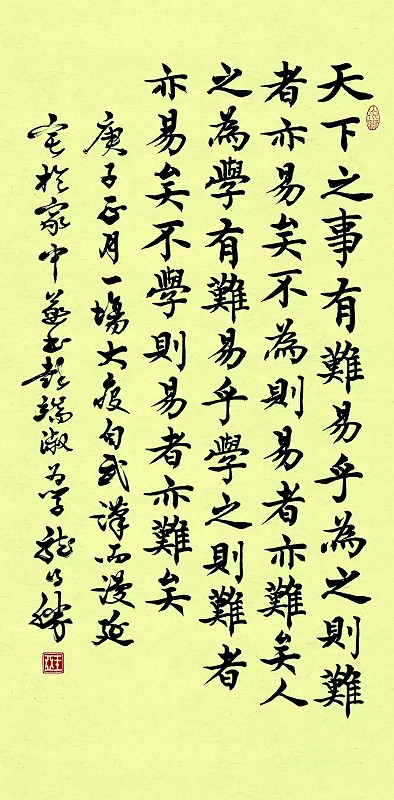 天下之事有難易乎為之則難
者亦易矣不為則易者亦難矣人
之為學有難易乎學之則難者
亦易矣不學則易者亦難矣
庚子正月一場大疫武漢而漫延
宅於家中書彭端淑为学